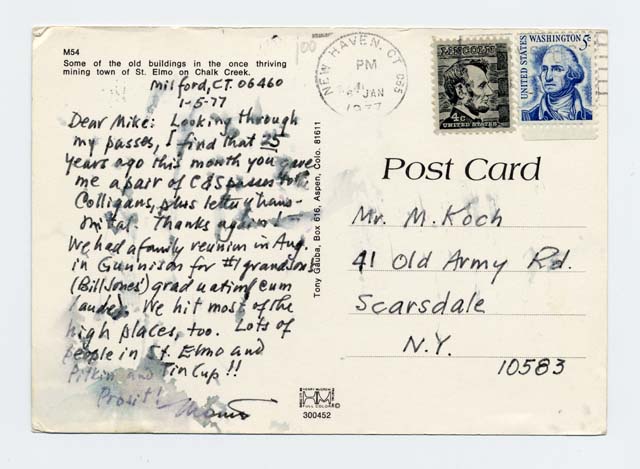 M54
Some of the old buildings in the once thriving
mining town of St. Elmo on Chalk Creek.
Milford, CT. 06460
1-5-77
Dear Mike: Looking through
my passes, I find that 25
years ago this month you gave
me a pair of C&S passes to
Colligans, plus letter of trans-
mittal. Thanks again!
We had a family reunion in Aug.
in Gunnison for #1 grandson's
(Bill Jones') graduating (cum
laude). We hit most of the
high places, too. Lots of
people in St. Elmo and
Pitkin and Tin Cup!!
Prosit!
Tony Gauba, Box 616, Aspen, Colo. 81611
100
NEW HAVEN, CT 065
PM
JAN
1977
LINCOLN
4c
UNITED STATES
WASHINGTON 5c
UNITED STATES
Post Card
Mr. M. Koch
41 Old Army Rd.
Scarsdale
N.Y.
10583
HM
FULL COLOR
300452